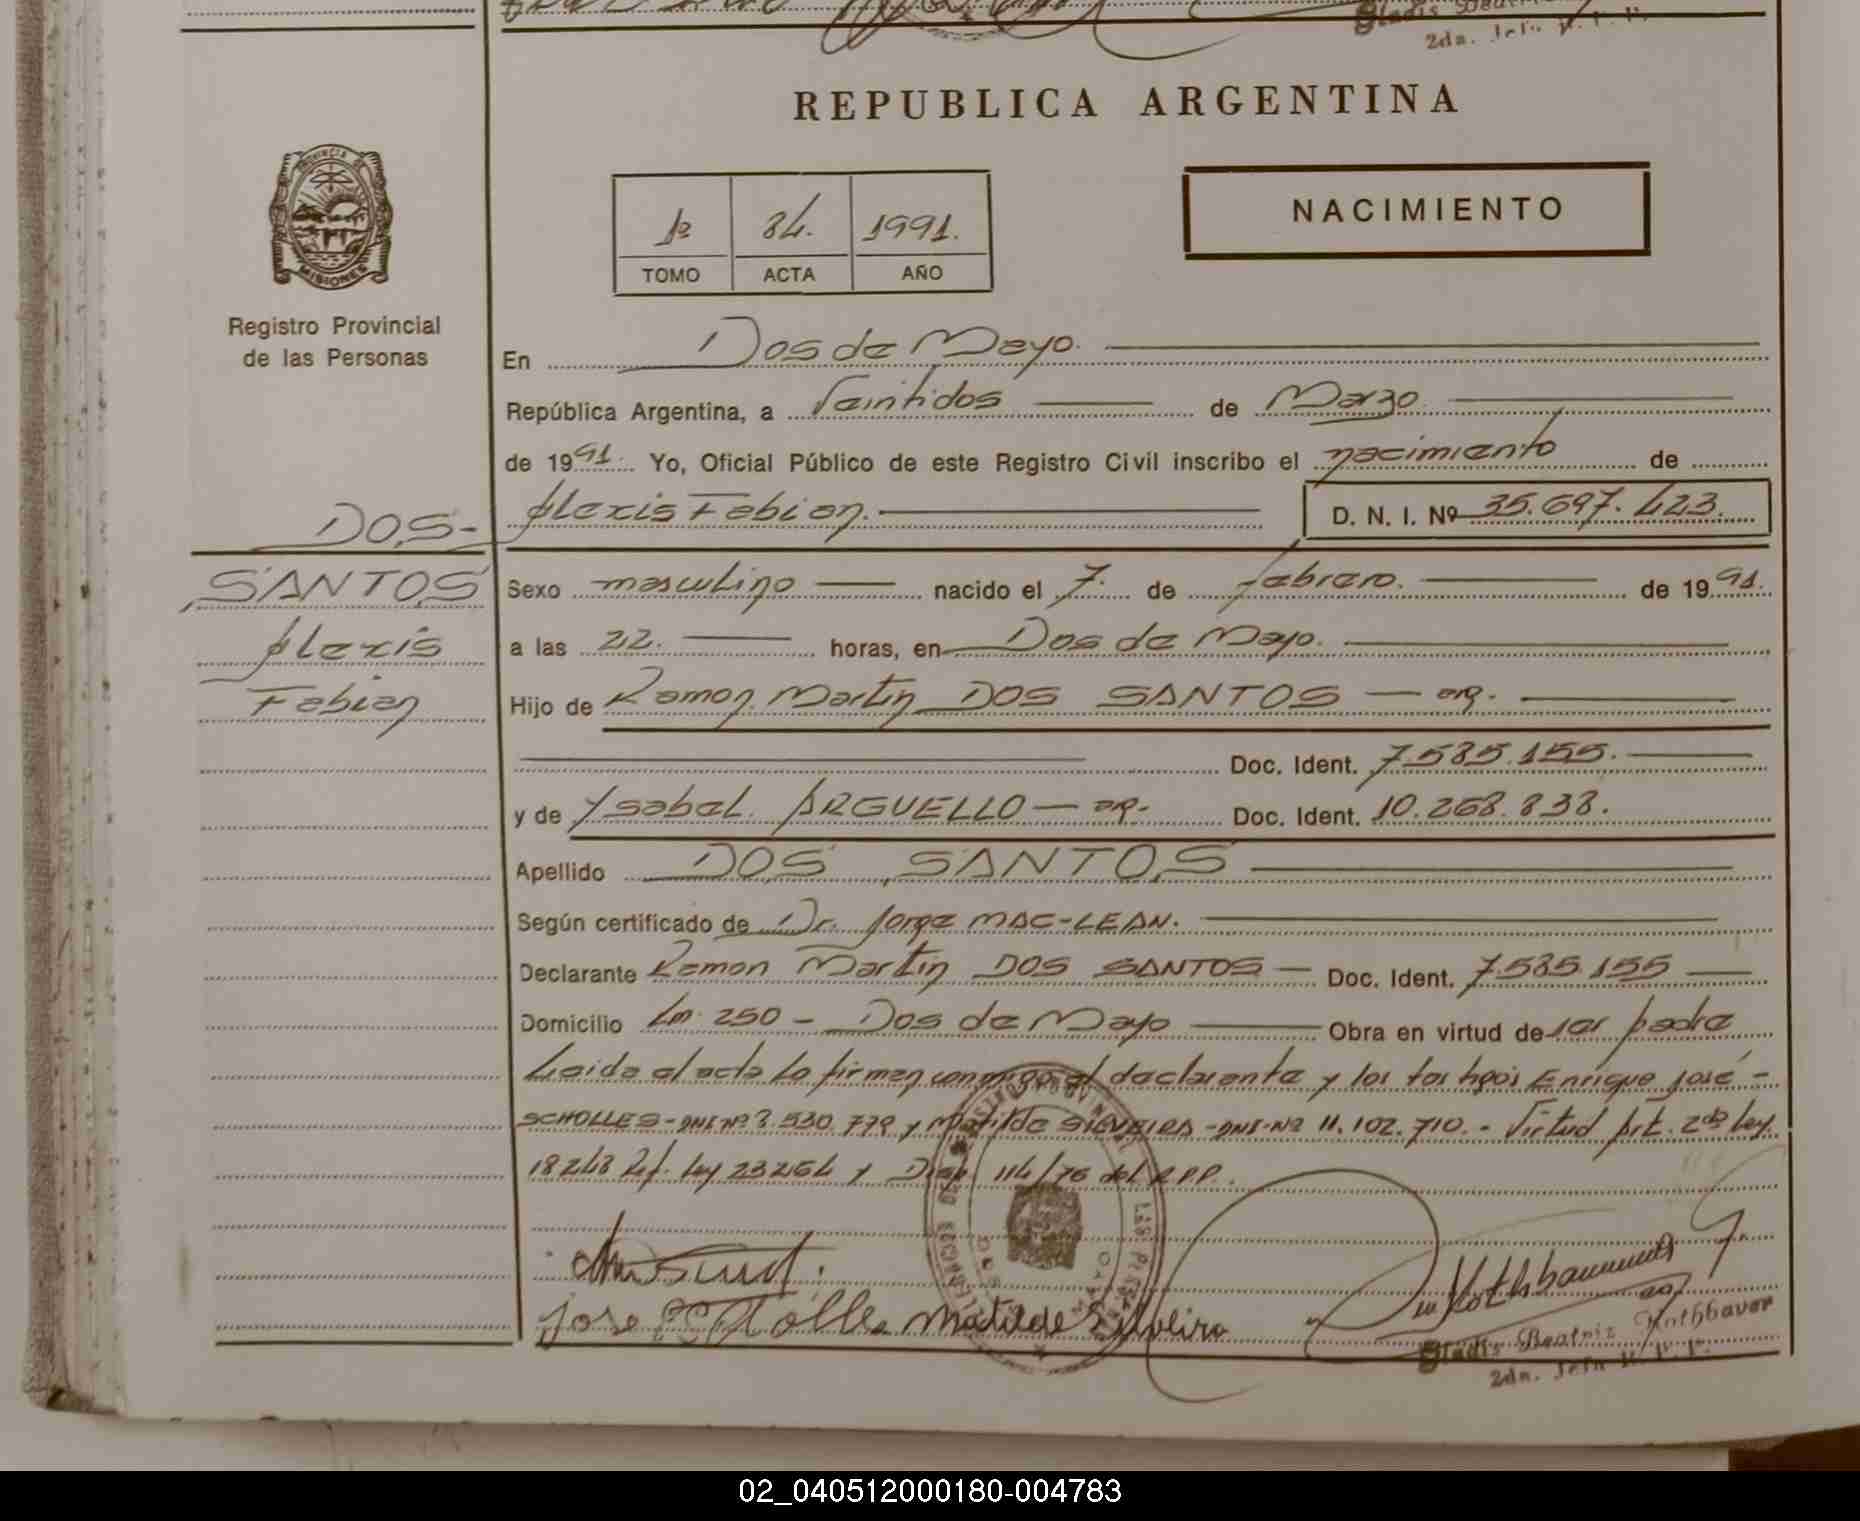 REPUBLICA ARGENTINA
PROVINCIA DE
MISIONES
Registro Provincial
de las Personas
1º 84. 1991.
TOMO ACTA AÑO
NACIMIENTO
En Dos de Mayo.
República Argentina, a Veintidos de Marzo
de 1991. Yo, Oficial Público de este Registro Civil inscribo el nacimiento de
Alexis Fabian. D. N. I. Nº 35.697.423.
DOS-
SANTOS
Alexis
Fabian
Sexo masculino nacido el 7. de febrero. de 1991.
a las 22. horas, en Dos de Mayo.
Hijo de Ramon Martin DOS SANTOS — arg.
Doc. Ident. 7.585.155.
y de Ysabel ARGUELLO — arg. Doc. Ident. 10.268.838.
Apellido DOS SANTOS
Según certificado de Dr. Jorge MAC-LEAN.
Declarante Ramon Martin DOS SANTOS — Doc. Ident. 7.585.155
Domicilio Km. 250 - Dos de Mayo Obra en virtud de ser padre
Leida el acta la firman conmigo el declarante y los testigos Enrique José -
SCHOLLES - DNI Nº 530.779 y Matilde SILVEIRA - DNI-Nº 11.102.710. - Virtud Art. 2do Ley
18248 Ley 23264 y Disp 114/76 del R.P.P.
Jose Matilde Silveira
Gladis Beatriz
2da. Jefa
02_040512000180-004783